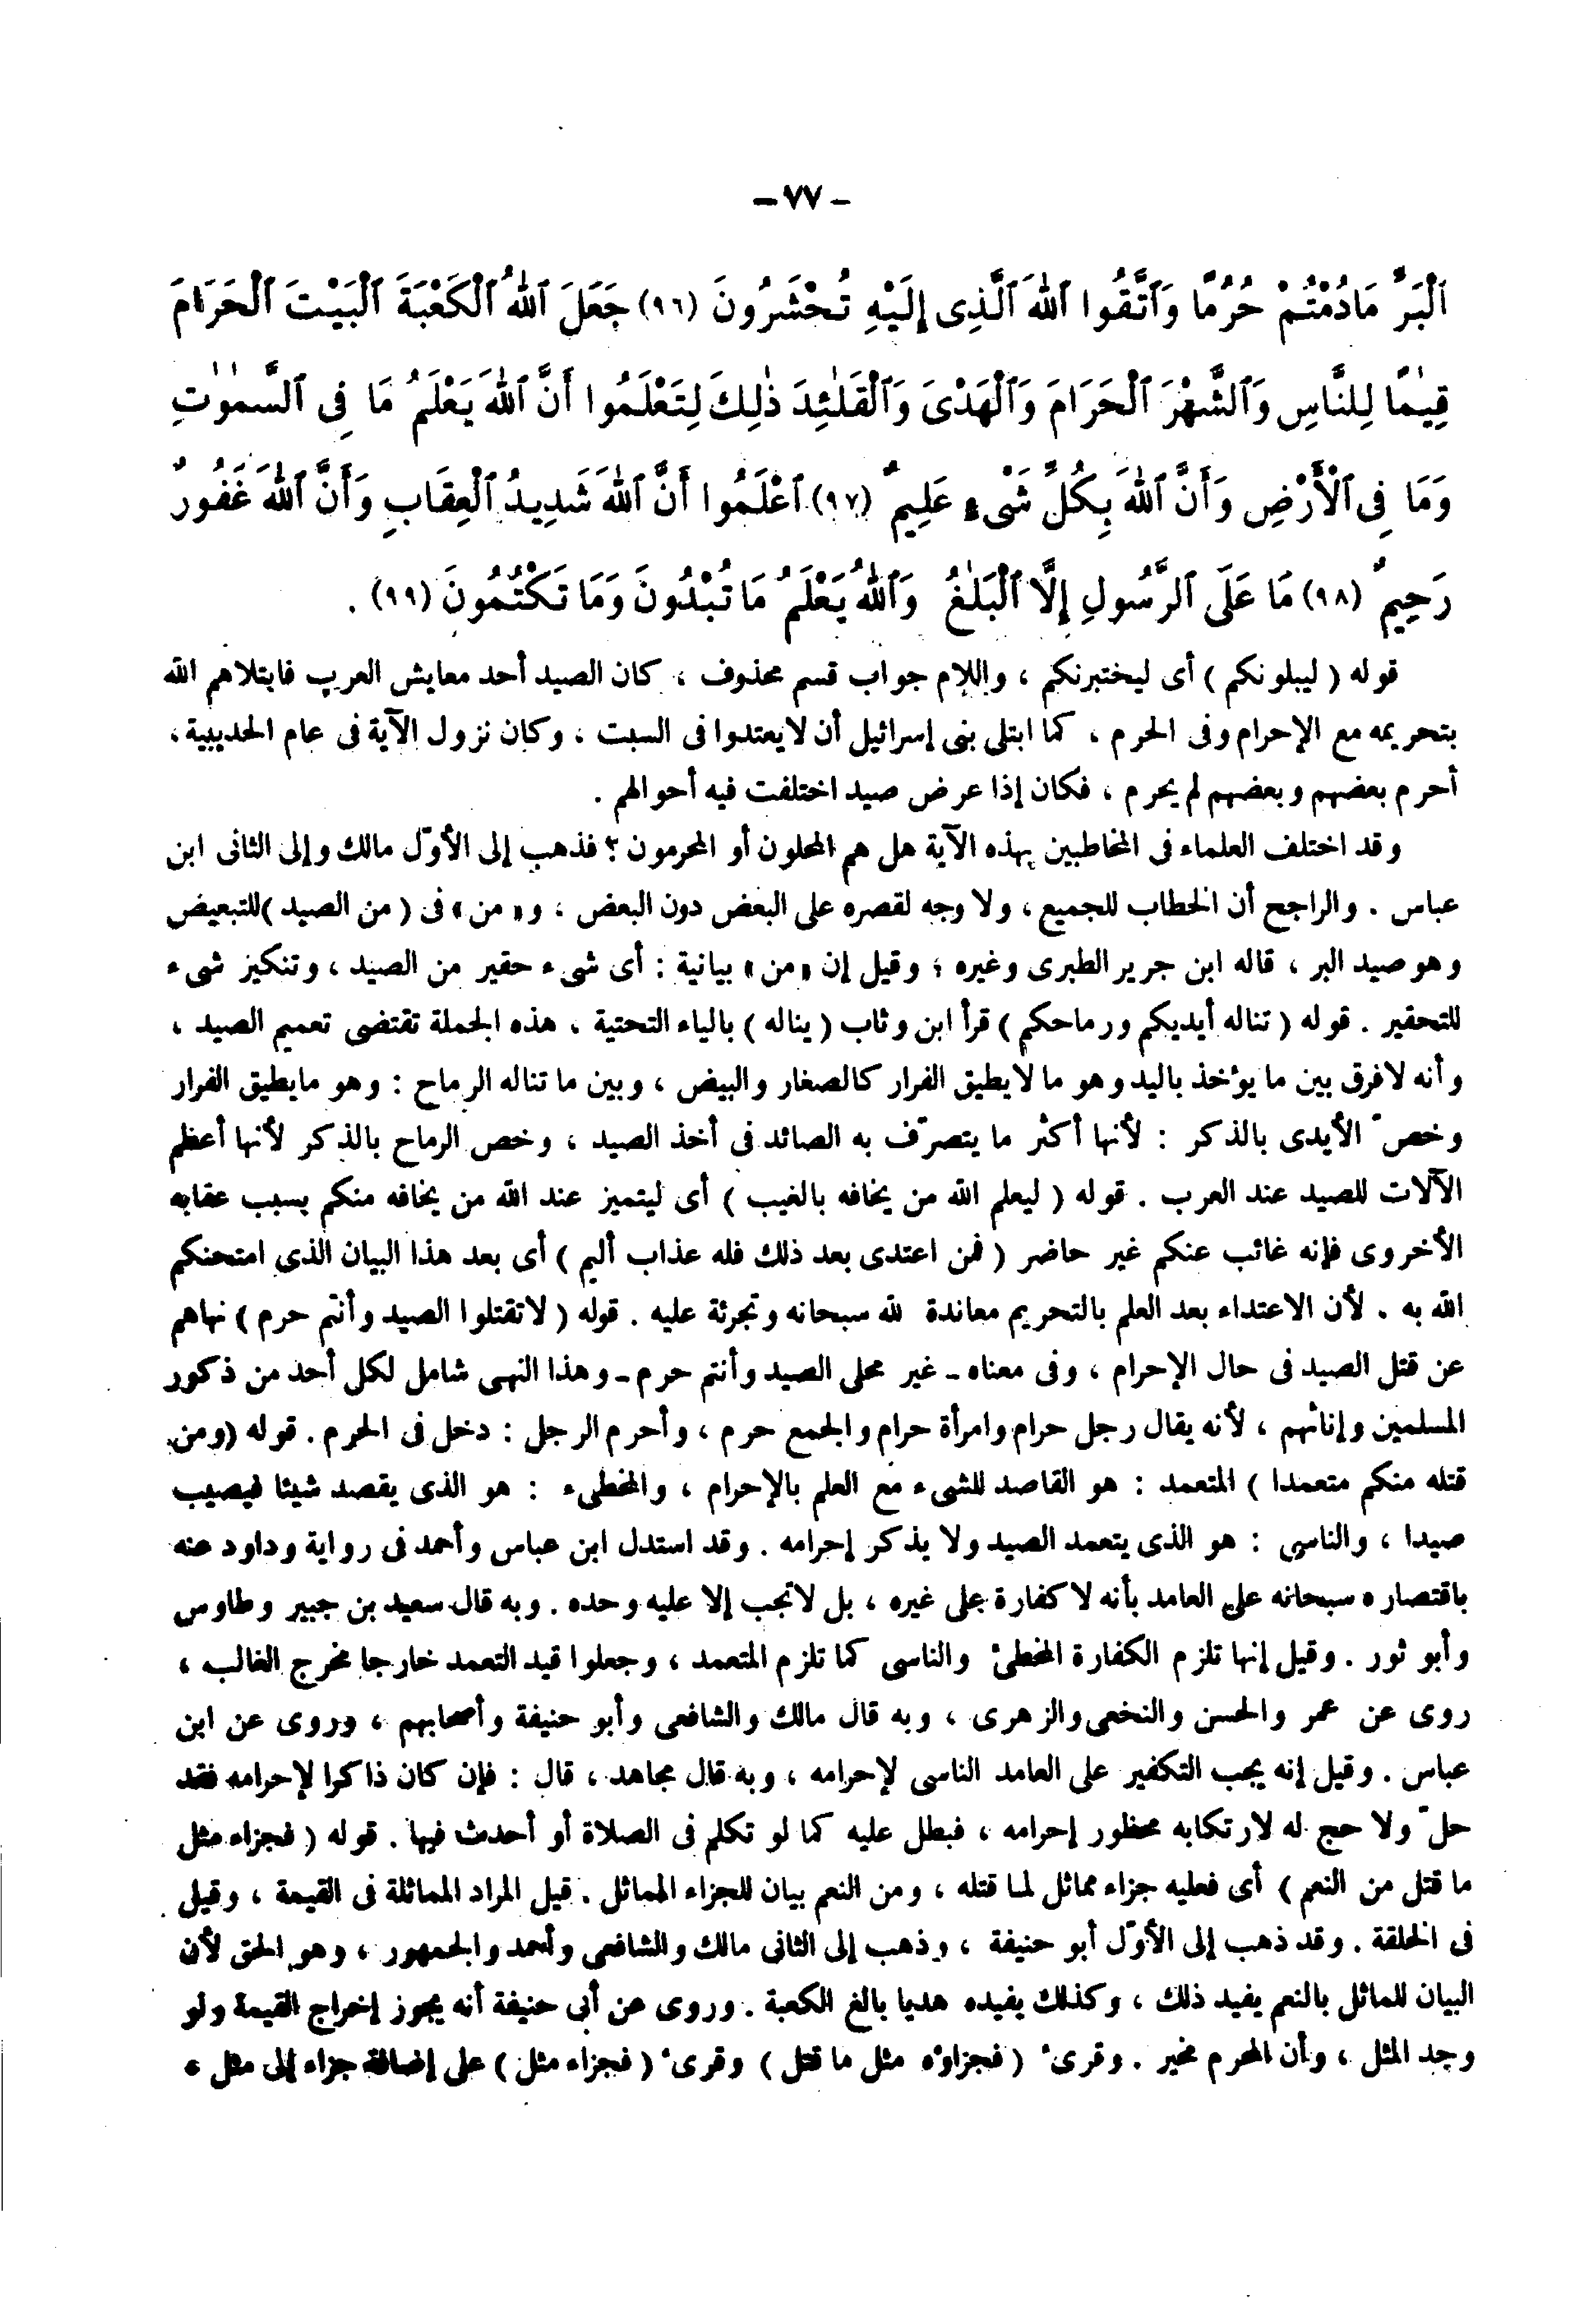 - ٧٧ -
ٱلْبَرِّ مَادُمْتُمْ حُرُمًا وَٱتَّقُوا ٱللهَ ٱلَّذِى إِلَيْهِ تُحْشَرُونَ (٩٦) جَعَلَ ٱللهُ ٱلْكَعْبَةَ ٱلْبَيْتَ ٱلْحَرَامَ
قِيَٰمًا لِلنَّاسِ وَٱلشَّهْرَ ٱلْحَرَامَ وَٱلْهَدْىَ وَٱلْقَلَٰئِدَ ذَٰلِكَ لِتَعْلَمُوا أَنَّ ٱللهَ يَعْلَمُ مَا فِى ٱلسَّمَٰوَٰتِ
وَمَا فِى ٱلْأَرْضِ وَأَنَّ ٱللهَ بِكُلِّ شَىْءٍ عَلِيمٌ (٩٧) ٱعْلَمُوا أَنَّ ٱللهَ شَدِيدُ ٱلْعِقَابِ وَأَنَّ ٱللهَ غَفُورٌ
رَحِيمٌ (٩٨) مَا عَلَى ٱلرَّسُولِ إِلَّا ٱلْبَلَٰغُ وَٱللهُ يَعْلَمُ مَا تُبْدُونَ وَمَا تَكْتُمُونَ (٩٩) .
قوله ( ليبلونكم ) أى ليختبرنكم ، واللام جواب قسم محذوف ، كان الصيد أحد معايش العرب فابتلاهم الله
بتحريمه مع الإحرام وفى الحرم ، كما ابتلى بنى إسرائيل أن لايعتدوا فى السبت ، وكان نزول الآية فى عام الحديبية ،
أحرم بعضهم وبعضهم لم يحرم ، فكان إذا عرض صيد اختلفت فيه أحوالهم .
وقد اختلف العلماء فى المخاطبين بهذه الآية هل هم المحلون أو المحرمون ؟ فذهب إلى الأوّل مالك وإلى الثانى ابن
عباس . والراجح أن الخطاب للجميع ، ولا وجه لقصره على البعض دون البعض ، و« من » فى ( من الصيد ) للتبعيض
وهو صيد البر ، قاله ابن جرير الطبرى وغيره ؛ وقيل إن « من » بيانية : أى شىء حقير من الصيد ، وتنكيز شىء
للتحقير . قوله ( تناله أيديكم ورماحكم ) قرأ ابن وثاب ( يناله ) بالياء التحتية ، هذه الجملة تقتضى تعميم الصيد ،
وأنه لافرق بين ما يؤخذ باليد وهو ما لايطيق الفرار كالصغار والبيض ، وبين ما تناله الرماح : وهو مايطيق الفرار
وخصّ الأيدى بالذكر : لأنها أكثر ما يتصرّف به الصائد فى أخذ الصيد ، وخص الرماح بالذكر لأنها أعظم
الآلات للصيد عند العرب . قوله ( ليعلم الله من يخافه بالغيب ) أى ليتميز عند الله من يخافه منكم بسبب عقابه
الأخروى فإنه غائب عنكم غير حاضر ( فمن اعتدى بعد ذلك فله عذاب أليم ) أى بعد هذا البيان الذى امتحنكم
الله به . لأن الاعتداء بعد العلم بالتحريم معاندة لله سبحانه وتجرئة عليه . قوله ( لاتقتلوا الصيد وأنتم حرم ) نهاهم
عن قتل الصيد فى حال الإحرام ، وفى معناه - غير محلى الصيد وأنتم حرم - وهذا النهى شامل لكل أحد من ذكور
المسلمين وإناثهم ، لأنه يقال رجل حرام وامرأة حرام والجمع حرم ، وأحرم الرجل : دخل فى الحرم . قوله ( ومن
قتله منكم متعمدا ) المتعمد : هو القاصد للشىء مع العلم بالإحرام ، والمخطىء : هو الذى يقصد شيئا فيصيب
صيدا ، والناسى : هو الذى يتعمد الصيد ولا يذكر إحرامه . وقد استدل ابن عباس وأحمد فى رواية وداود عنه
باقتصاره سبحانه على العامد بأنه لا كفارة على غيره ، بل لاتجب إلا عليه وحده . وبه قال سعيد بن جبير وطاوس
وأبو ثور . وقيل إنها تلزم الكفارة المخطئ والناسى كما تلزم المتعمد ، وجعلوا قيد التعمد خارجا مخرج الغالب ،
روى عن عمر والحسن والنخعى والزهرى ، وبه قال مالك والشافعى وأبو حنيفة وأصحابهم ، وروى عن ابن
عباس . وقيل إنه يجب التكفير على العامد الناسى لإحرامه ، وبه قال مجاهد ، قال : فإن كان ذاكرا لإحرامه فقد
حلّ ولا حج له لارتكابه محظور إحرامه ، فبطل عليه كما لو تكلم فى الصلاة أو أحدث فيها . قوله ( فجزاء مثل
ما قتل من النعم ) أى فعليه جزاء مماثل لما قتله ، ومن النعم بيان للجزاء المماثل . قيل المراد المماثلة فى القيمة ، وقيل
فى الخلقة . وقد ذهب إلى الأوّل أبو حنيفة ، وذهب إلى الثانى مالك والشافعى وأحمد والجمهور ، وهو الحق لأن
البيان للمماثل بالنعم يفيد ذلك ، وكذلك يفيده هديا بالغ الكعبة . وروى عن أبى حنيفة أنه يجوز إخراج القيمة ولو
وجد المثل ، وأن المحرم مخير . وقرىء ( فجزاؤه مثل ما قتل ) وقرىء ( فجزاء مثل ) على إضافة جزاء إلى مثل ،